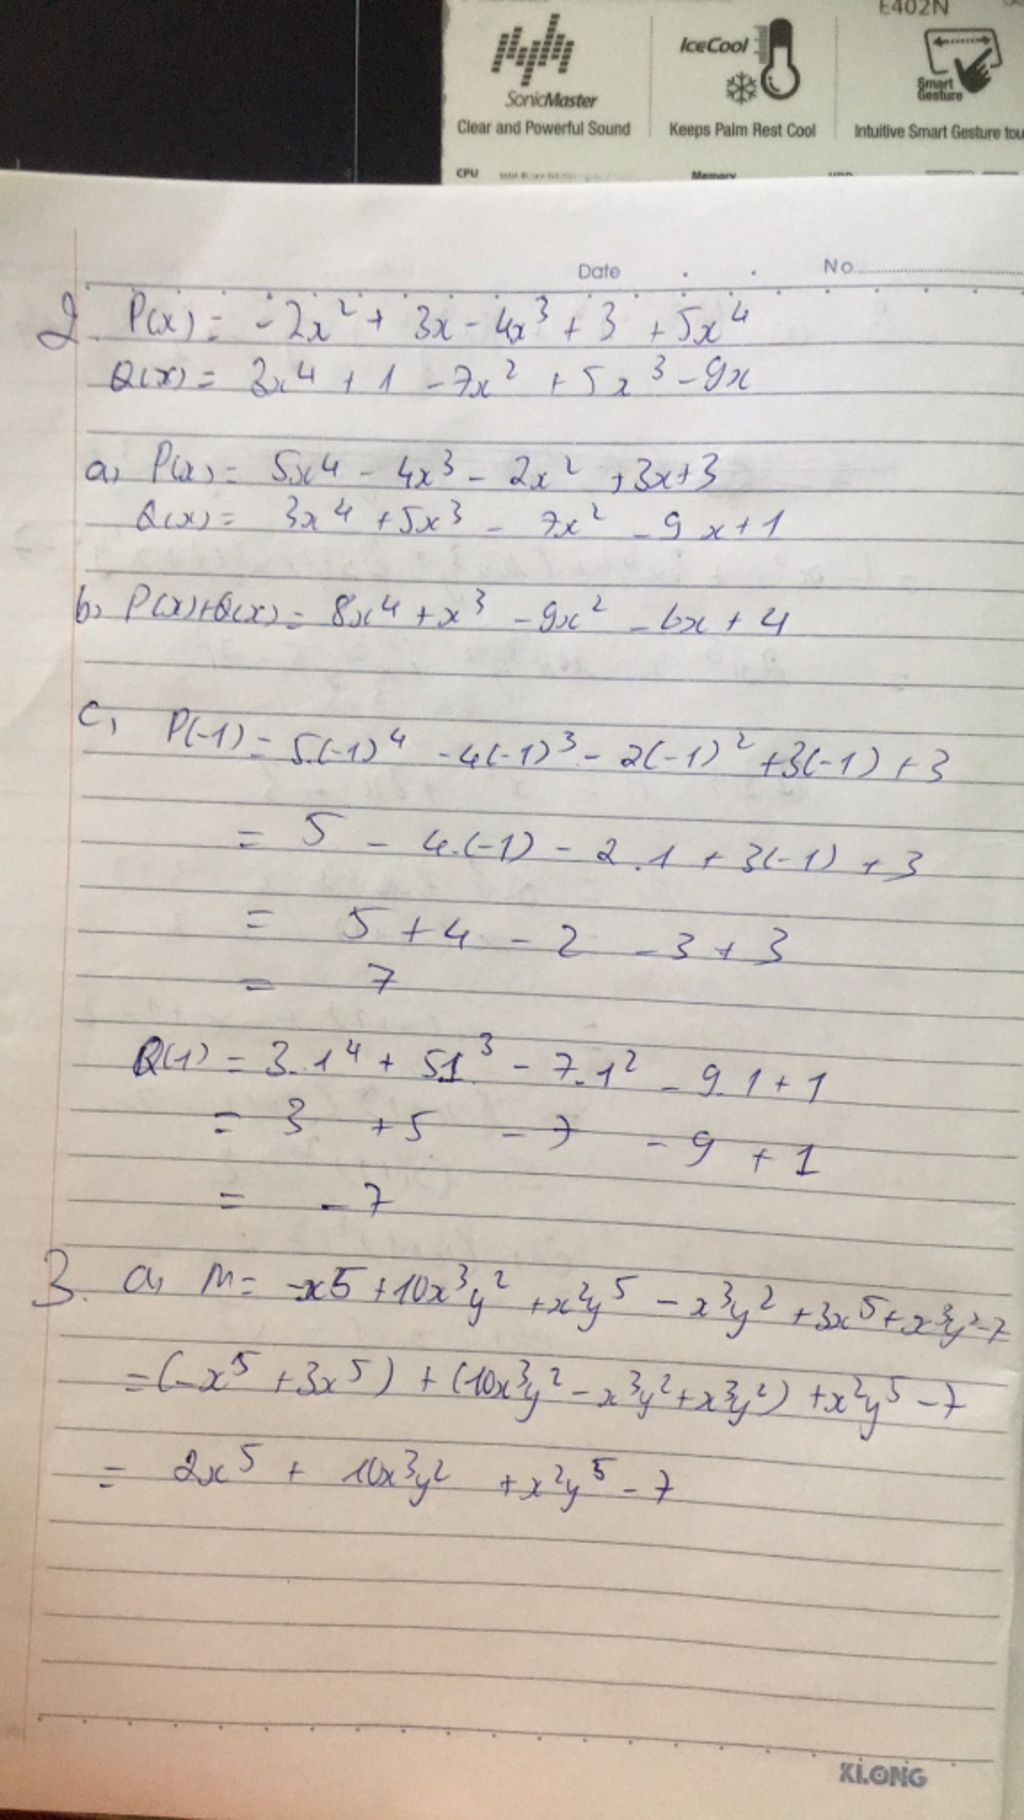 E402N
SonicMaster
Clear and Powerful Sound
IceCool
Keeps Palm Rest Cool
Smart Gesture
Intuitive Smart Gesture tou
CPU
Memory
Date . . No
2. P(x) = -2x² + 3x - 4x³ + 3 + 5x⁴
Q(x) = 3x⁴ + 1 - 7x² + 5x³ - 9x
a, P(x) = 5x⁴ - 4x³ - 2x² + 3x + 3
Q(x) = 3x⁴ + 5x³ - 7x² - 9x + 1
b, P(x)+Q(x) = 8x⁴ + x³ - 9x² - 6x + 4
c, P(-1) = 5.(-1)⁴ - 4(-1)³ - 2(-1)² + 3(-1) + 3
= 5 - 4.(-1) - 2.1 + 3(-1) + 3
= 5 + 4 - 2 - 3 + 3
= 7
Q(1) = 3.1⁴ + 5.1³ - 7.1² - 9.1 + 1
= 3 + 5 - 7 - 9 + 1
= -7
3. a, M = -x⁵ + 10x³y² + x²y⁵ - x³y² + 3x⁵ + x³y² - 7
= (-x⁵ + 3x⁵) + (10x³y² - x³y² + x³y²) + x²y⁵ - 7
= 2x⁵ + 10x³y² + x²y⁵ - 7
KLONG